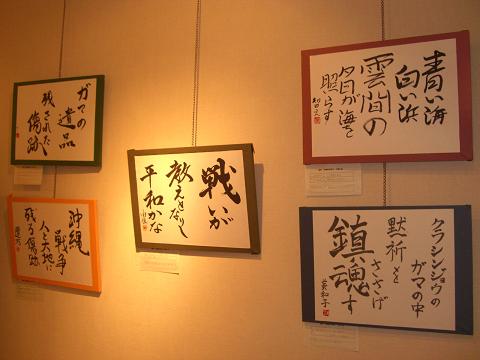 ガマの
遺品
残された
傷跡
沖縄
戦争
人と大地に
残る傷跡
戦いが
教えなりし
平和かな
青い海
白い浜
雲間の
夕日が海を
照らす
クラシンジョウの
ガマの中
黙祈を
ささげ
鎮魂す
美和子